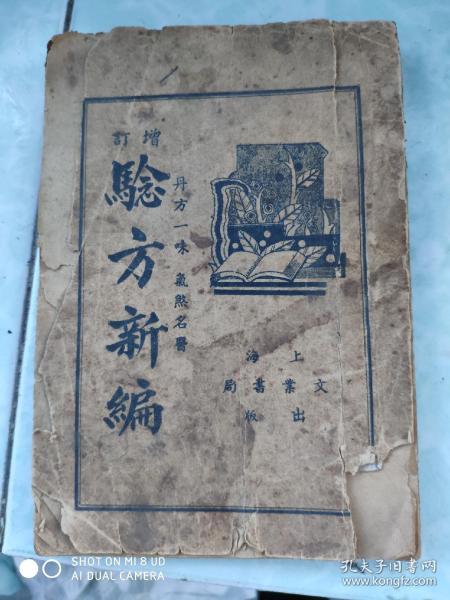 增訂
驗方新編
丹方一味 氣煞名醫
上海
文業書局
出版
SHOT ON MI 8 UD
AI DUAL CAMERA
孔夫子旧书网
www.kongfz.com